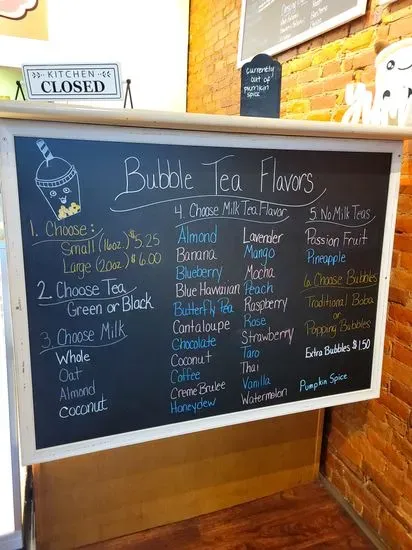 KITCHEN
CLOSED
currently
out of
pumpkin
spice
Bubble Tea Flavors
1. Choose:
Small (16oz.) $5.25
Large (20oz.) $6.00
2. Choose Tea
Green or Black
3. Choose Milk
Whole
Oat
Almond
Coconut
4. Choose Milk Tea Flavor
Almond
Banana
Blueberry
Blue Hawaiian
Butterfly Pea
Cantaloupe
Chocolate
Coconut
Coffee
Creme Brulee
Honeydew
Lavender
Mango
Mocha
Peach
Raspberry
Rose
Strawberry
Taro
Thai
Vanilla
Watermelon
5. No Milk Teas
Passion Fruit
Pineapple
6. Choose Bubbles
Traditional Boba
or
Popping Bubbles
Extra Bubbles $1.50
Pumpkin Spice